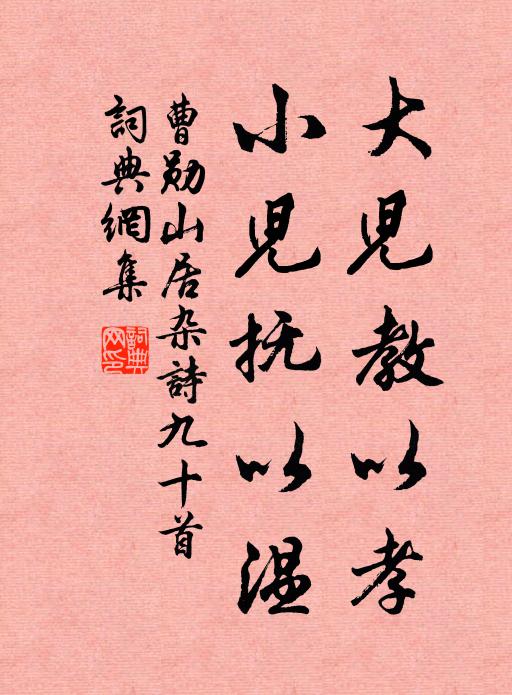 大児教以孝
小児抚以温
曹勋山居杂詩九十首
詞典網集
詞典网印